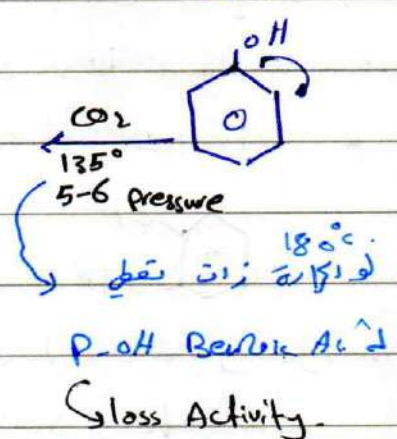 OH
CO2
135°
5-6 pressure
180°C
لو الحرارة زادت تعطي
P-OH Benzoic Acid
loss Activity.